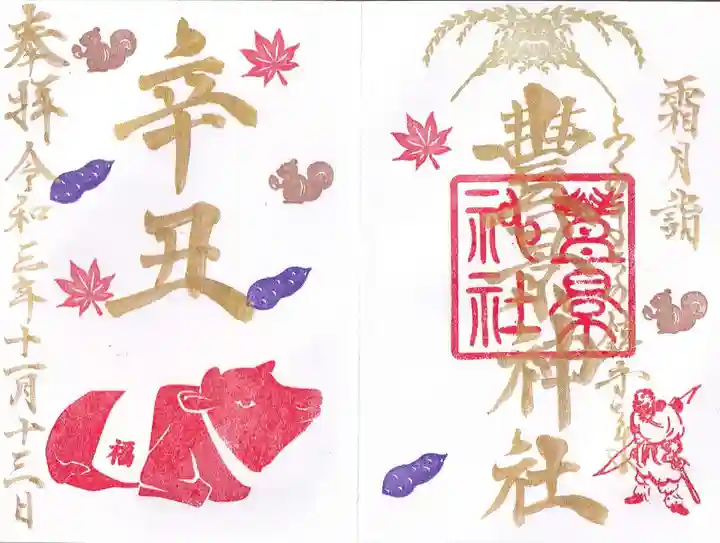 霜月詣
豊景神社
豊景神社
辛丑
福
奉拝令和三年十一月十三日